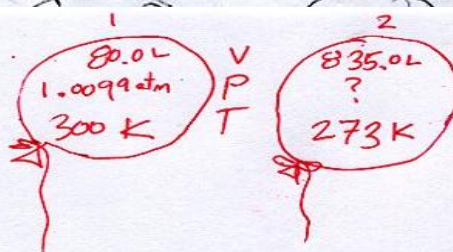 1
80.0L
1.0099 atm
300 K
V
P
T
2
835.0L
?
273 K